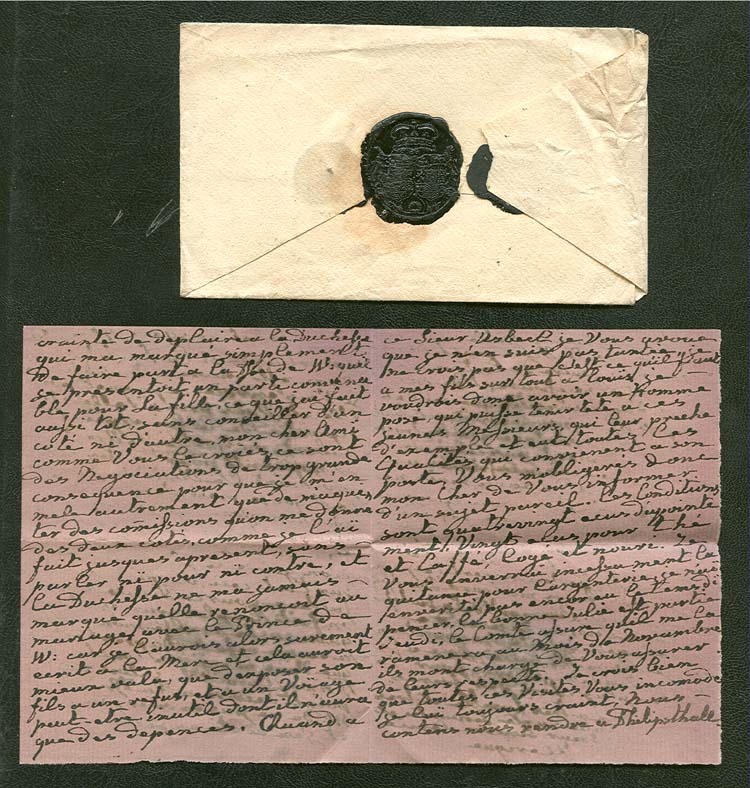 crainte de deplaire a la Duchesse
qui ma marque simplement
de faire part a la de W: quil
se presentoit un parti convena
ble pour sa fille, ce que jai fait
aussi tot, sans conseiller d'un
coté ni d'autre, mon cher Ami
comme Vous le croies, ce sont
des Negociations de trop grande
consequence pour que je m'en
mele autrement que de m'aquit
ter des comissions qu'on me donne
des deux cotés, comme je l'ai
fait jusques apresent, sans
parler ni pour ni contre, et
la Duchesse ne ma jamais
marqué quelle renoncoit au
mariage avec le Prince de
W: car je l'aurois alors surement
ecrit a la Mere et cela auroit
mieux valu, que d'exposer son
fils a un refus, et a un Voiage
peut etre inutil dont il n'aura
que des depences. Quand a
ce Sieur je Vous avoue
que je n'en suis pas tantée et je
ne crois pas que c'est ce qu'il faut
a mes fils sur tout a Louis, je
voudrois donc avoir un homme
posé, qui puisse tenir tete a ces
jeunes Messieurs, qui leur preche
d'exemple et ait toutes les
qualités qui convienent a son
poste, Vous m'obligeres donc
mon cher de Vous informer
d'un sujet pareil. Les conditions
sont quatrevingt ecus d'apointe
ment, Vingt ecus pour the
et caffé, logé et nouri. Je
Vous enverrai incessament la
quitance pour l'argenterie, je nai
pas encor eu le tems d'y
penser, la bonne Julie est partie
jeudi, le Comte assure qu'il me la
ramenera au Mois de Novambre
ils mont chargé de Vous assurer
de leurs respects. Je crois bien
que toutes ces Visites Vous incomode
je l'ai toujours craint, nous
contons nous rendre a Philipsthall